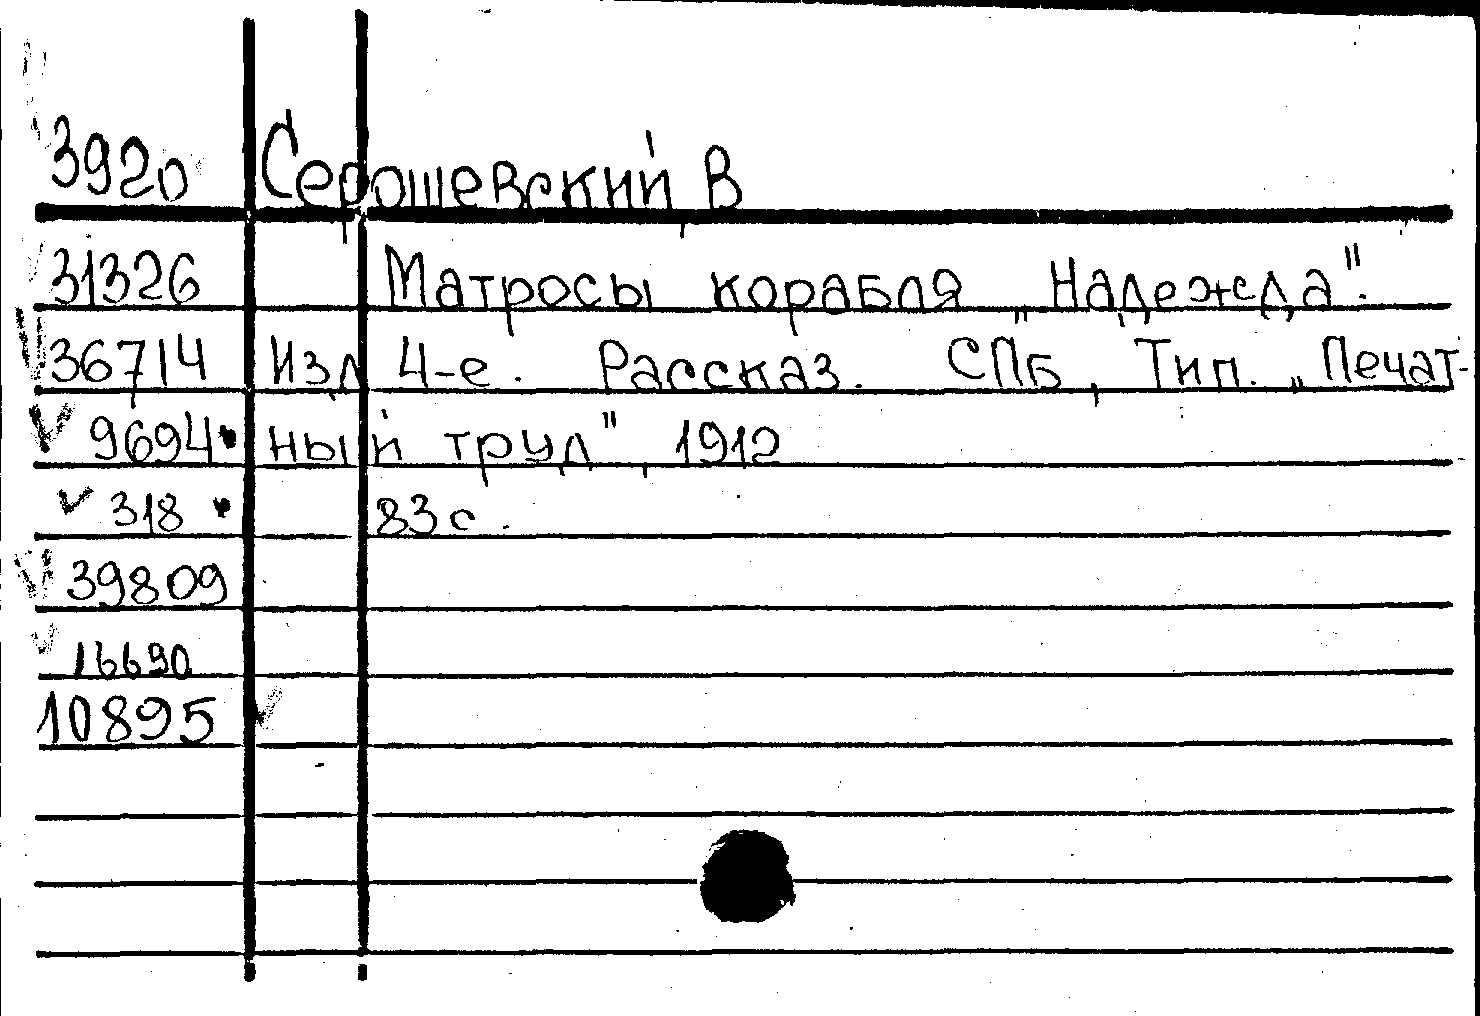 3920 Серошевский В
31326 Матросы корабля „Надежда".
36714 Изд 4-е. Рассказ. СПБ, Тип. „Печат-
9694 ный труд", 1912
318 83с.
39809
16690
10895